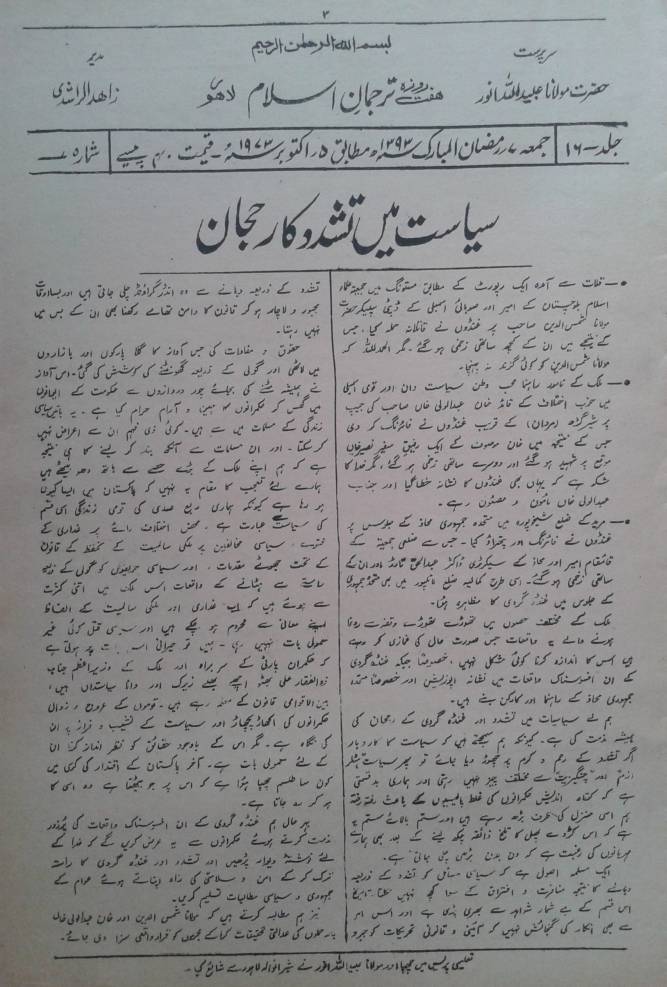 ۳
بسم اللہ الرحمٰن الرحیم
سرپرست
حضرت مولانا عبید اللہ انور
ہفت روزہ ترجمان اسلام لاہور
مدیر
زاہد الراشدی
جلد ۔ ۱۶
جمعہ ۷ ررمضان المبارک ۱۳۹۳ھ مطابق ۵ راکتوبر ۱۹۷۳ء ۔ قیمت ۴۰ پیسے
شمارہ ۔
سیاست میں تشدد کا رجحان
● — قلات سے آمدہ ایک رپورٹ کے مطابق مستونگ میں جمعیۃ علماء
اسلام بلوچستان کے امیر اور صوبائی اسمبلی کے ڈپٹی سپیکر حضرت
مولانا شمس الدین صاحب پر غنڈوں نے قاتلانہ حملہ کیا، جس
کے نتیجے میں ان کے کچھ ساتھی زخمی ہو گئے۔ مگر الحمد للہ کہ
مولانا شمس الدین کو کوئی گزند نہ پہنچا۔
● — ملک کے نامور راہنما محب وطن سیاست دان اور قومی اسمبلی
میں حزب اختلاف کے قائد خان عبدالولی خاں صاحب کی جیپ
پر شیرگڑھ (مردان) کے قریب غنڈوں نے فائرنگ کر دی
جس کے نتیجہ میں خان موصوف کے ایک رفیق سفیر نصیر خان
موقع پر شہید ہو گئے اور دوسرے ساتھی زخمی ہو گئے، مگر خدا کا
شکر ہے کہ یہاں بھی غنڈوں کا نشانہ خطا گیا اور جناب
عبدالولی خاں مامون و مصئون رہے۔
● — مریدکے ضلع شیخوپورہ میں متحدہ جمہوری محاذ کے جلوس پر
غنڈوں نے فائرنگ اور پتھراؤ کیا۔ جس سے ضلعی جمعیۃ کے
قائمقام امیر اور محاذ کے سیکرٹری ڈاکٹر عبدالحق تارڈ اور ان کے
ساتھی زخمی ہو گئے۔ اسی طرح کمالیہ ضلع لائلپور میں بھی متحدہ جمہوری محاذ
کے جلوس میں غنڈہ گردی کا مظاہرہ ہوا۔
ملک کے مختلف حصوں میں تھوڑے تھوڑے وقفہ سے رونما
ہونے والے یہ واقعات جس صورت حال کی غمازی کر رہے
ہیں اس کا اندازہ کرنا کوئی مشکل نہیں، خصوصاً جبکہ غنڈہ گردی
کے ان افسوسناک واقعات میں نشانہ اپوزیشن اور خصوصاً متحدہ
جمہوری محاذ کے راہنما اور کارکن بنے ہیں۔
ہم نے سیاسیات میں تشدد اور غنڈہ گردی کے رجحان کی
ہمیشہ مذمت کی ہے۔ کیونکہ ہم سمجھتے ہیں کہ سیاست کا کاروبار
اگر تشدد کے رحم و کرم پر چھوڑ دیا جائے تو پھر سیاست "ہٹلر
ازم" اور "چنگیزیت" سے مختلف چیز نہیں رہتی اور ہماری بدقسمتی
ہے کہ کوتاہ اندیش حکمرانوں کی غلط پالیسیوں کے باعث رفتہ رفتہ
ہم اسی منزل کی طرف بڑھ رہے ہیں اور ستم بالائے ستم یہ
ہے کہ اس کڑوے پھل کا تلخ ذائقہ چکھ لینے کے بعد بھی ہمارے
مہربانوں کی رغبت ہے کہ دن بدن بڑھتی ہی جاتی ہے۔
ایک مسلمہ اصول ہے کہ سیاسی مسائل کو تشدد کے ذریعہ
دبانے کا نتیجہ منافرت و افتراق کے سوا کچھ نہیں نکلتا۔ تاریخ
اس قسم کے بے شمار شواہد سے بھری پڑی ہے اور اس امر
سے بھی انکار کی گنجائش نہیں کہ آئینی و قانونی تحریکات کو جبر و
تشدد کے ذریعہ دبانے سے وہ انڈر گراؤنڈ چلی جاتی ہیں اور بسا اوقات
مجبور و لاچار ہو کر قانون کا دامن تھامے رکھنا بھی ان کے بس میں
نہیں رہتا۔
حقوق و مفادات کی جس آواز کا گلا پارکوں اور بازاروں
میں لاٹھی اور گولی کے ذریعہ گھونٹنے کی کوشش کی گئی۔ اس آواز
نے ہمیشہ مٹنے کی بجائے چور دروازوں سے حکومت کے ایوانوں
میں گھس کر حکمرانوں کا چین و آرام حرام کیا ہے۔ یہ باتیں سیاسی
زندگی کے مسلمات میں سے ہیں۔ کوئی ذی فہم ان سے اعراض نہیں
کر سکتا۔ اور ان مسلمات سے آنکھ بند کر لینے کا ہی نتیجہ
ہے کہ ہم اپنے ملک کے بڑے حصے سے ہاتھ دھو بیٹھے ہیں
ہمارے لئے تعجب کا مقام یہ نہیں کہ پاکستان میں ایسا کیوں
ہو رہا ہے کیونکہ ہماری ربع صدی کی قومی زندگی اسی قسم
کی سیاست عبارت ہے، محض اختلاف رائے پر غداری کے
فتوے، سیاسی مخالفین پر ملکی سالمیت کے تحفظ کے قانون
کے تحت جھوٹے مقدمات، اور سیاسی حریفوں کو گولی کے ذریعہ
راستے سے ہٹانے کے واقعات اس ملک میں اتنی کثرت
سے ہوئے ہیں کہ اب غداری اور ملکی سالمیت کے الفاظ
اپنے معانی سے محروم ہو چکے ہیں اور سیاسی قتل کوئی غیر
معمولی بات نہیں رہی۔ ہمیں تو حیرانی اس بات پر ہوتی ہے
کہ حکمران پارٹی کے سربراہ اور ملک کے وزیراعظم جناب
ذوالفقار علی بھٹو اچھے بھلے زیرک اور دانا سیاستداں ہیں،
بین الاقوامی قانون کے معلم رہے ہیں۔ قوموں کے عروج و زوال
حکمرانوں کی اکھاڑ پچھاڑ اور سیاست کے نشیب و فراز پر ان
کی نگاہ ہے۔ مگر اس کے باوجود حقائق کو نظر انداز کرنا ان
کے لئے معمولی بات ہے۔ آخر پاکستان کے اقتدار کی کرسی میں
کون سا طلسم چھپا ہوا ہے کہ اس پر جو بیٹھتا ہے وہ اسی کا
ہو کر رہ جاتا ہے۔
بہر حال ہم غنڈہ گردی کے ان افسوسناک واقعات کی پُرزور
مذمت کرتے ہوئے حکمرانوں سے یہ عرض کریں گے کہ خدا کے
لئے نوشتۂ دیوار پڑھیں اور تشدد اور غنڈہ گردی کا راستہ
ترک کر کے امن و سلامتی کی راہ اپناتے ہوئے عوام کے
جمہوری و سیاسی مطالبات تسلیم کریں۔
نیز ہم مطالبہ کرتے ہیں کہ مولانا شمس الدین اور خان عبدالولی خاں
پر حملوں کی عدالتی تحقیقات کرا کے مجرموں کو قرار واقعی سزا دی جائے۔
تعلیمی پریس میں چھپا اور مولانا عبید اللہ انور نے شیرانوالہ لاہور سے شائع کیا۔